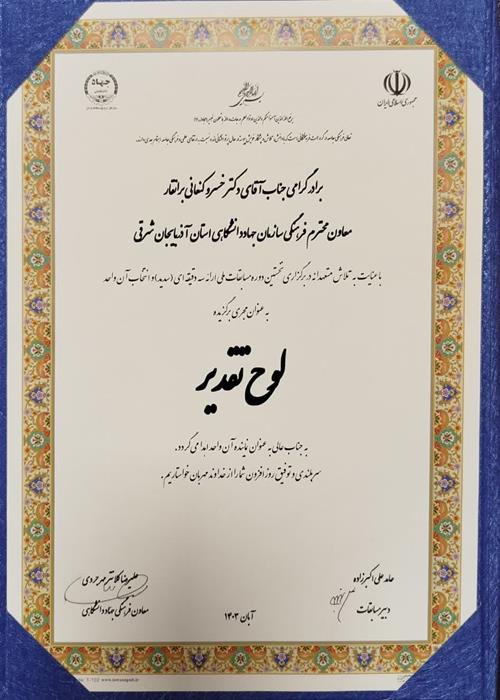 جمهوری اسلامی ایران
جهاد
یرفع الله الذین آمنوا منکم والذین اوتوا العلم درجات
برادر گرامی جناب آقای دکتر خسرو کنعانی برانقار
معاون محترم فرهنگی سازمان جهاددانشگاهی استان آذربایجان شرقی
با عنایت به تلاش متعهدانه در برگزاری نخستین دوره مسابقات ملی ارائه سه دقیقه ای (سدید) و انتخاب آن واحد
به عنوان مجری برگزیده
لوح تقدیر
به جناب عالی به عنوان نماینده آن واحد اهدا می گردد.
سربلندی و توفیق روز افزون شما را از خداوند مهربان خواستاریم.
حامد علی اکبرزاده
دبیر مسابقات
آبان ۱۴۰۳
علیرضا کلانتر مهرجردی
معاون فرهنگی جهاد دانشگاهی